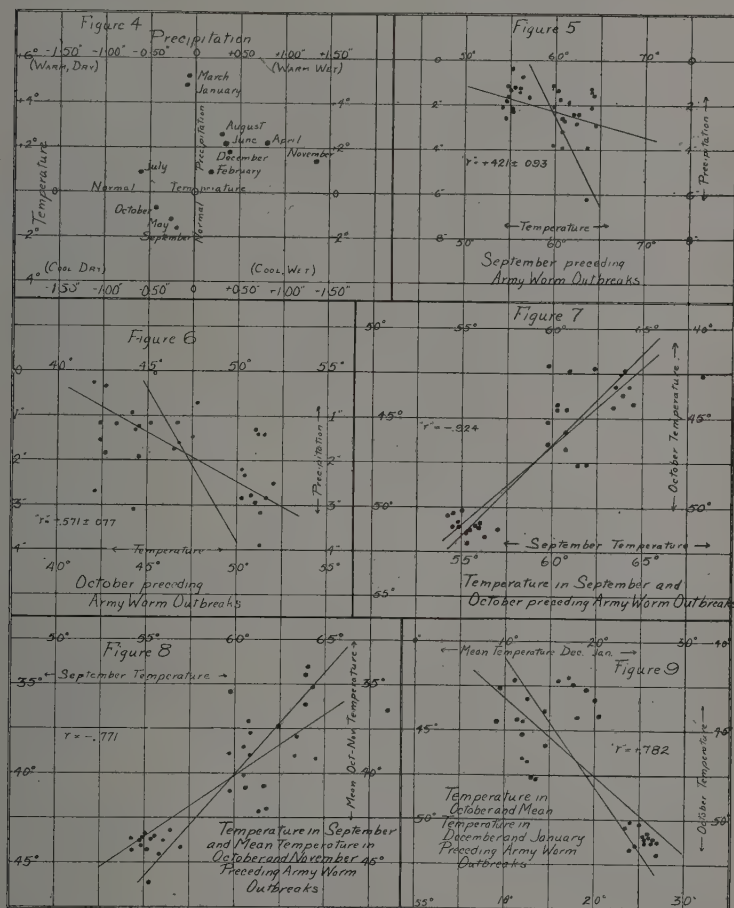 Figure 4
Precipitation
+6° -1.50" -1.00" -0.50" 0 +0.50" +1.00" +1.50"
(WARM, DRY) (WARM WET)
March
January
+4°
Precipitation
August
June
April
+2° +2°
December
November
July
February
Normal Temperature
0
Temperature
October
May
September
Normal
2° 2°
(COOL DRY) (COOL, WET)
4°
-1.50" -1.00" -0.50" 0 +0.50" +1.00" +1.50"
Figure 5
50° 60° 70°
0 0
2" 2"
4" 4"
"r" = +.421 ± .093
Precipitation
6" 6"
Temperature
50° 60° 70°
8"
September preceding
Army Worm Outbreaks
Figure 6
40° 45° 50° 55°
0 0
1" 1"
2" 2"
Precipitation
3" 3"
"r" = .571 ± .077
4" 4"
Temperature
40° 45° 50° 55°
October preceding
Army Worm Outbreaks
Figure 7
50° 55° 60° 65° 40°
45° 45°
"r" = -.824
October Temperature
50° 50°
September Temperature
55° 55° 60° 65°
Temperature in September and
October preceding Army Worm Outbreaks
Figure 8
50° 55° 60° 65°
September Temperature
35° 35°
Mean Oct-Nov. Temperature
r = -.771
40° 40°
Temperature in September
and Mean Temperature in
October and November
Preceding Army Worm
Outbreaks
45° 45°
Figure 9
0° 10° 20° 30°
Mean Temperature Dec. Jan.
45° 45°
"r" = +.782
October Temperature
Temperature in
October and Mean
Temperature in
December and January
Preceding Army Worm
Outbreaks
50° 50°
55° 10° 20° 30°